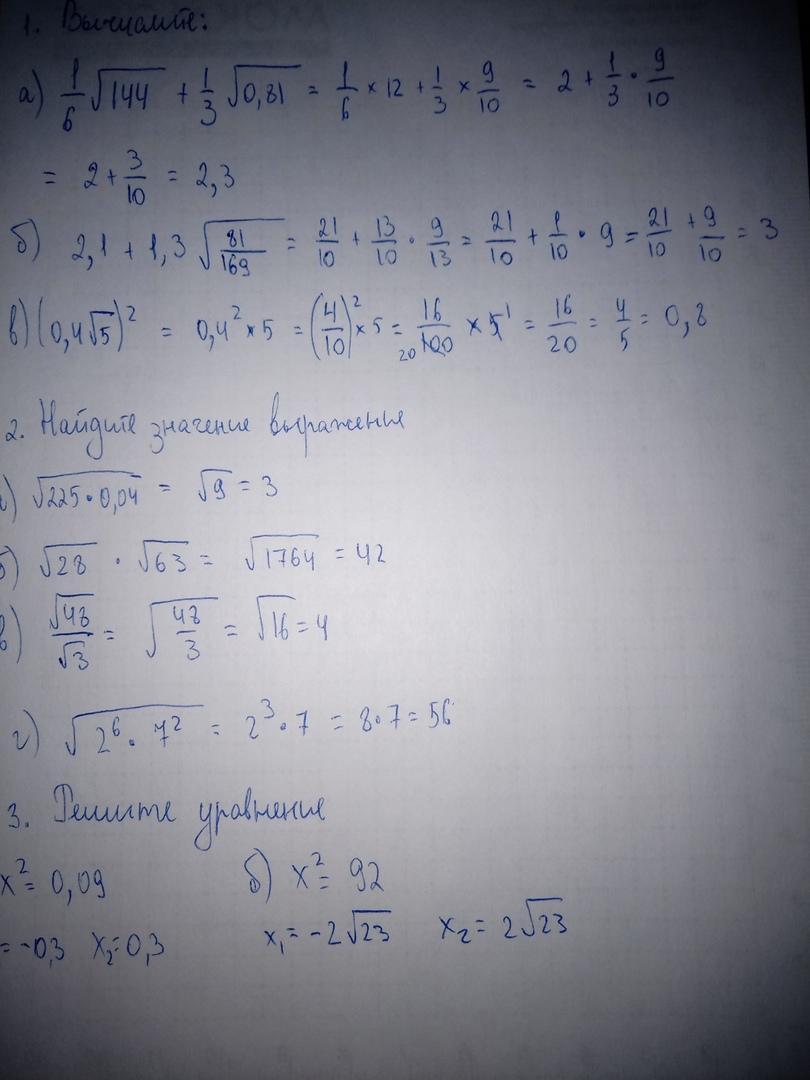 1. Вычислите:
а) 1/6 √144 + 1/3 √0,81 = 1/6 × 12 + 1/3 × 9/10 = 2 + 1/3 · 9/10
= 2 + 3/10 = 2,3
б) 2,1 + 1,3 √(81/169) = 21/10 + 13/10 · 9/13 = 21/10 + 1/10 · 9 = 21/10 + 9/10 = 3
в) (0,4√5)² = 0,4² × 5 = (4/10)² × 5 = 16/100 20 × 5 1 = 16/20 = 4/5 = 0,8
2. Найдите значение выражения
) √(225·0,04) = √9 = 3
б) √28 · √63 = √1764 = 42
в) √48/√3 = √(48/3) = √16 = 4
г) √(2⁶ · 7²) = 2³ · 7 = 8·7 = 56
3. Решите уравнение
x² = 0,09 б) x² = 92
= -0,3 x₂ = 0,3 x₁ = -2√23 x₂ = 2√23